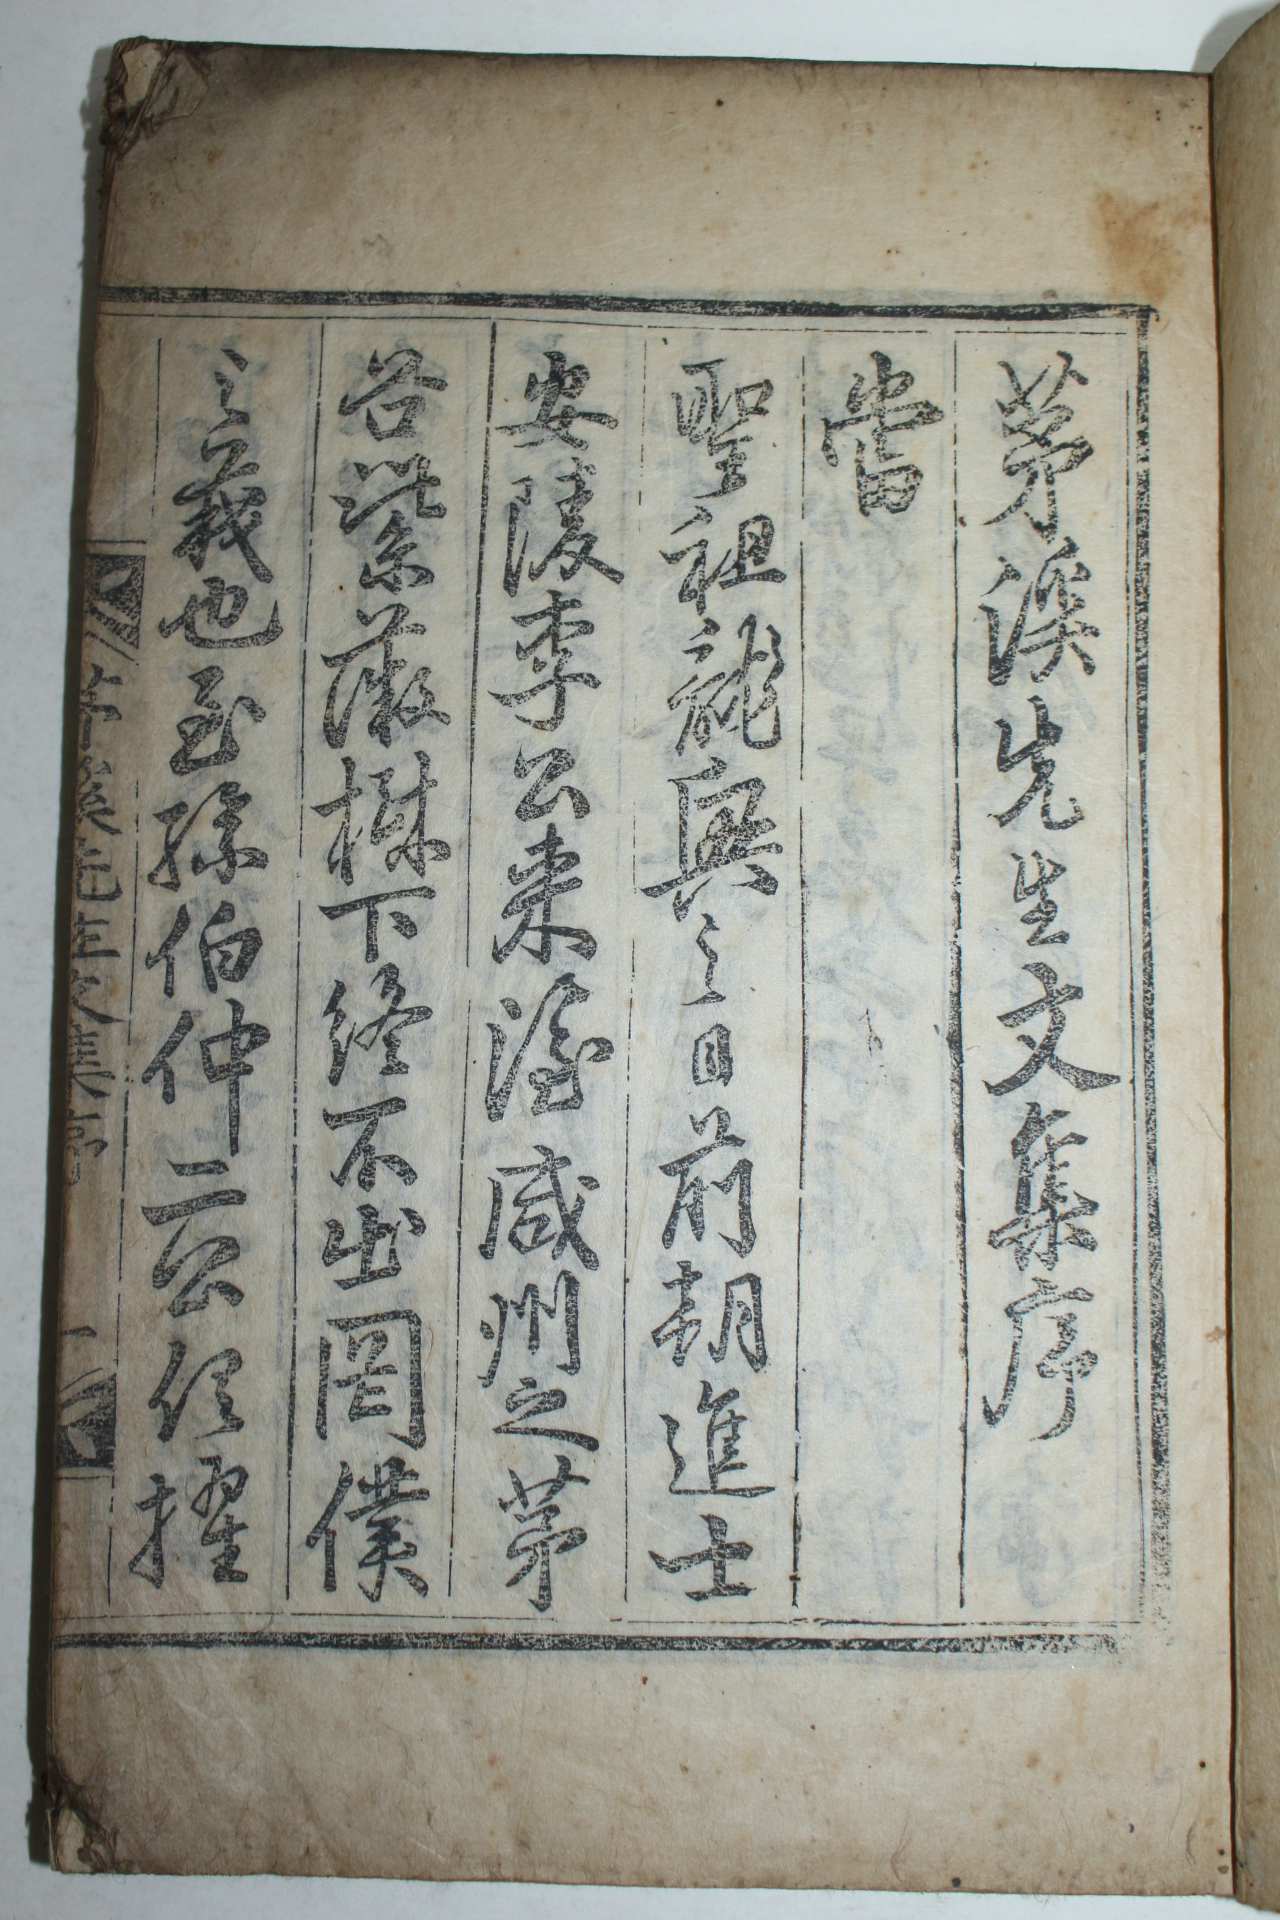 茅溪先生文集序
當
聖祖龍興之日前朝進士
安陵李公來隱咸州之茅
谷紫薇樹下終不出罔僕
之義也至孫伯仲二公俱擢
茅溪先生文集序 一